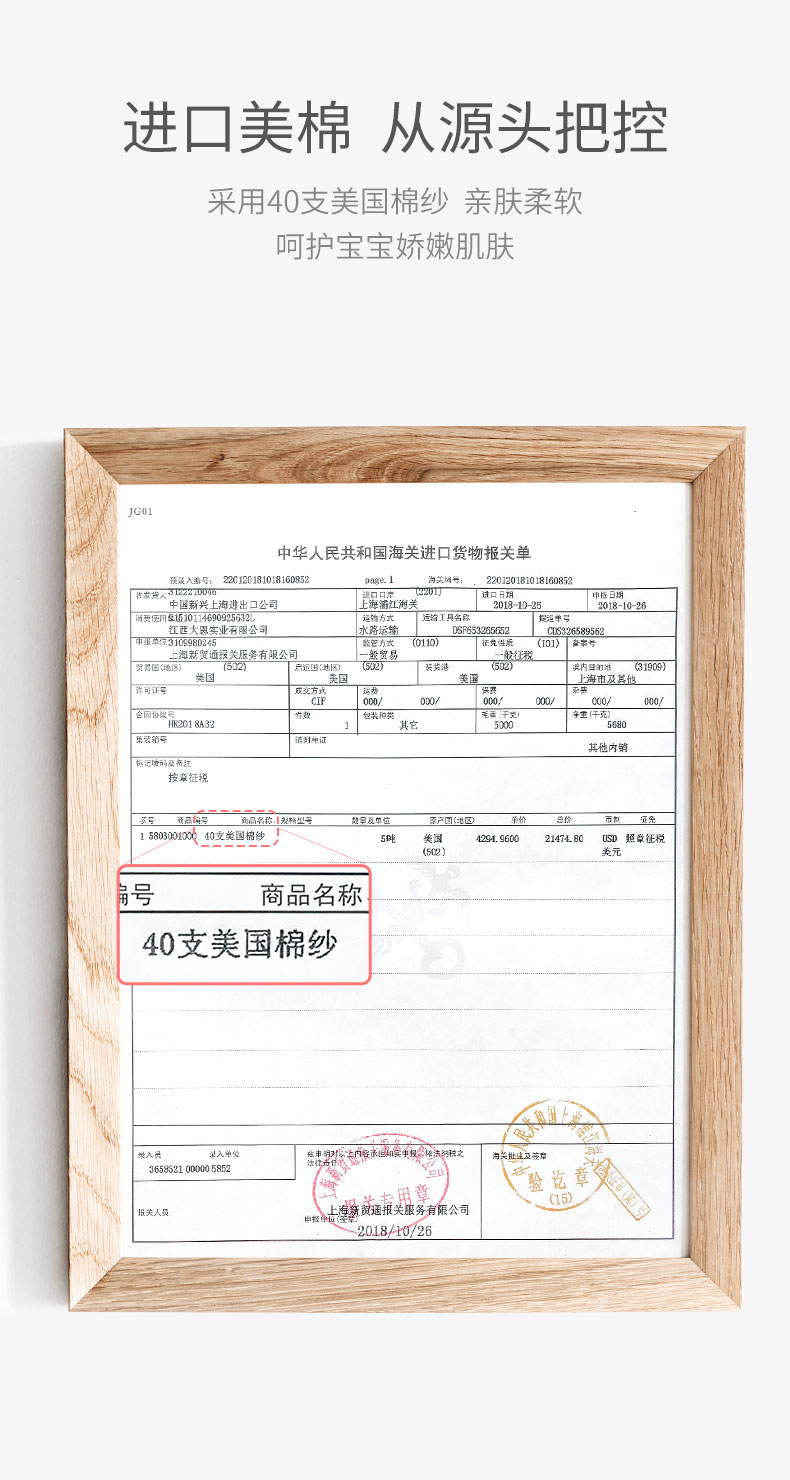 进口美棉 从源头把控
采用40支美国棉纱 亲肤柔软
呵护宝宝娇嫩肌肤
JG01
中华人民共和国海关进口货物报关单
预录入编号: 220120181018160852 page.1 海关编号: 220120181018160852
收发货人 3122210046 进口口岸 (2201) 进口日期 申报日期
中国新兴上海进出口公司 上海浦江海关 2018-10-25 2018-10-26
消费使用 运输方式 运输工具名称 提运单号
江西大恩实业有限公司 水路运输 DSF653265G52 CDS326589562
申报单位 3109980245 监管方式 (0110) 征免性质 (101) 备案号
上海新贸通报关服务有限公司 一般贸易 一般征税
贸易国(地区) (502) 启运国(地区) (502) 装货港 (502) 境内目的地 (31909)
美国 美国 美国 上海市及其他
许可证号 成交方式 运费 保费 杂费
CIF 000/ 000/ 000/ 000/ 000/ 000/
合同协议号 件数 包装种类 毛重(千克) 净重(千克)
HK2018A32 1 其它 5000 5680
集装箱号 随附单证
其他内销
标记唛码及备注
按章征税
项号 商品编号 商品名称、规格型号 数量及单位 原产国(地区) 单价 总价 币制 征免
1 5803001000 40支美国棉纱 5吨 美国 4294.9600 21474.80 USD 照章征税
(502) 美元
编号 商品名称、
40支美国棉纱
录入员 录入单位 兹申明对以上内容承担如实申报、依法纳税之 海关批注及签章
法律责任
3658521 00000 5852
上海新贸通报关服务有限公司
报关专用章
中华人民共和国上海浦江海关
验讫章
(15)
报关人员
上海新贸通报关服务有限公司
申报单位(签章)
2018/10/26